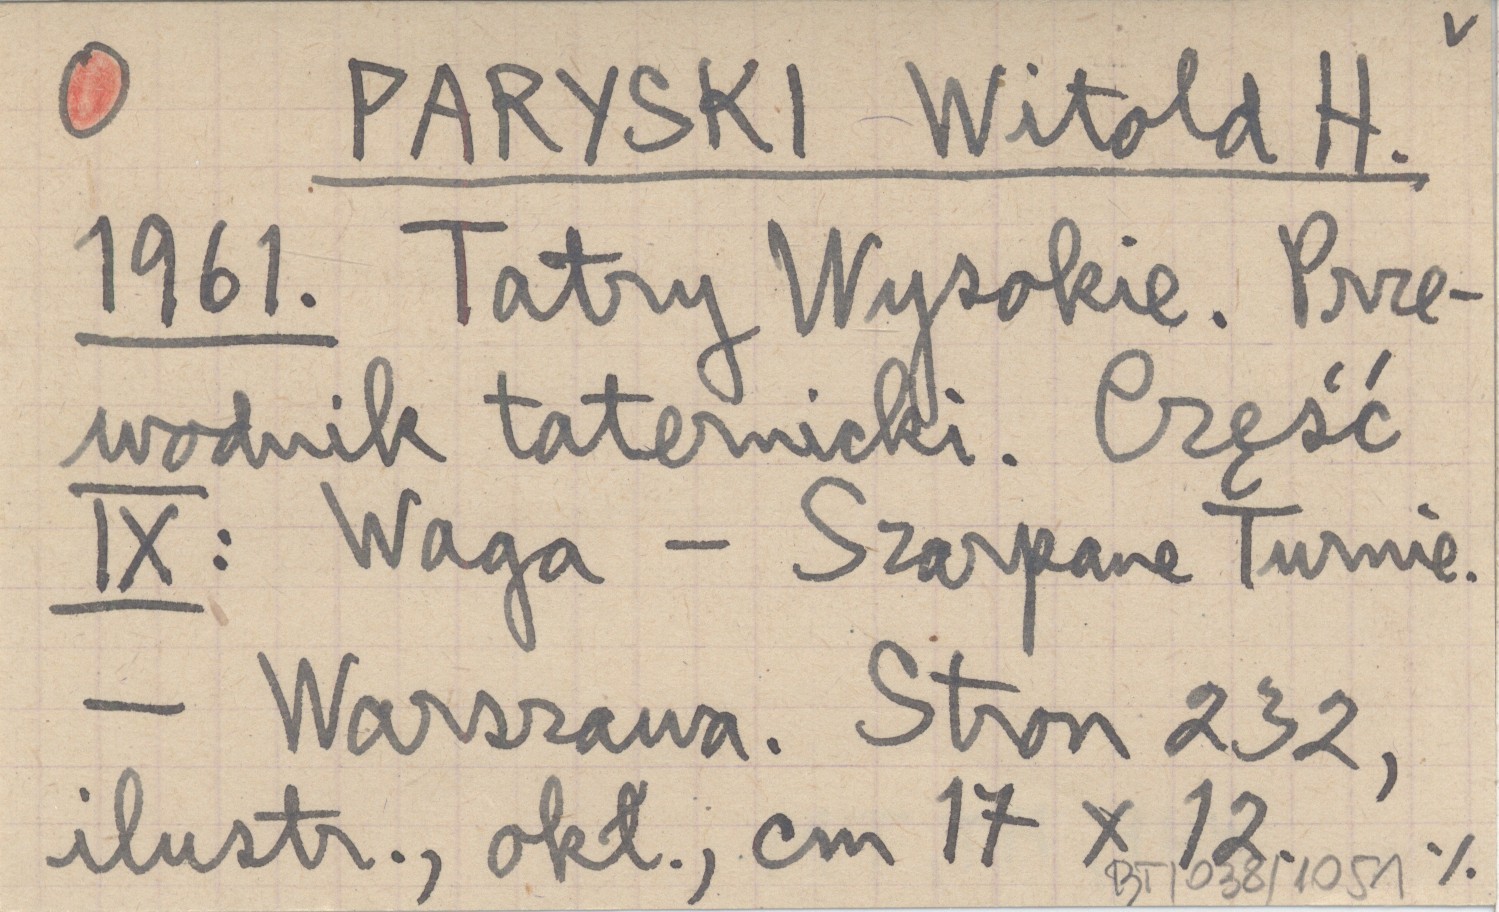 v
PARYSKI Witold H.
1961. Tatry Wysokie. Prze-
wodnik taternicki. Część
IX: Waga – Szarpane Turnie.
– Warszawa. Stron 232,
ilustr., okł., cm 17 x 12. ./.
BT/038/1051